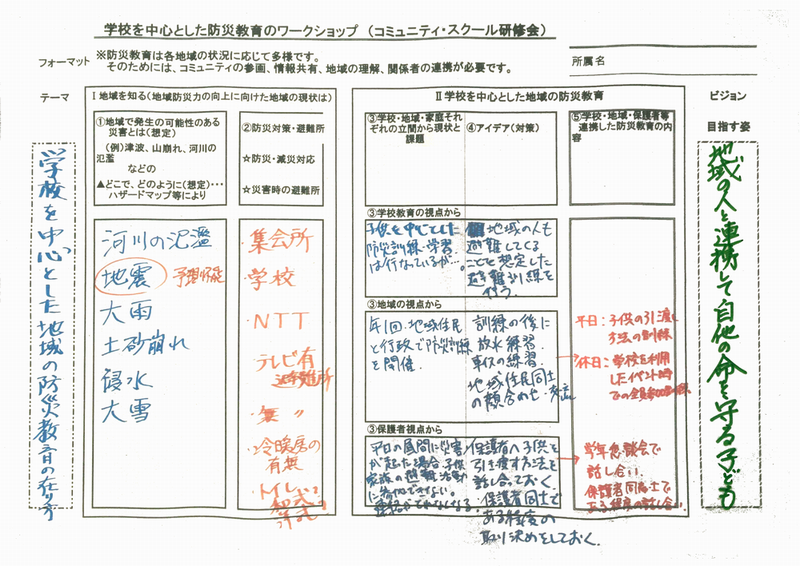 学校を中心とした防災教育のワークショップ （コミュニティ・スクール研修会）
フォーマット
※防災教育は各地域の状況に応じて多様です。
そのためには、コミュニティの参画、情報共有、地域の理解、関係者の連携が必要です。
所属名
テーマ
学校を中心とした地域の防災教育の在り方
Ⅰ地域を知る（地域防災力の向上に向けた地域の現状は）
①地域で発生の可能性のある
災害とは（想定）
（例）津波、山崩れ、河川の
氾濫
などの
▲どこで、どのように（想定）・・・
ハザードマップ等により
②防災対策・避難所
☆防災・減災対応
☆災害時の避難所
河川の氾濫
地震 予想不能
大雨
土砂崩れ
浸水
大雪
・集会所
・学校
・NTT
・テレビ有
避難所
・無 〃
・冷暖房の
有無
・トイレ
和式？
洋式？
Ⅱ学校を中心とした地域の防災教育
③学校・地域・家庭それ
ぞれの立間から現状と
課題
④アイデア（対策）
⑤学校・地域・保護者等
連携した防災教育の内
容
③学校教育の視点から
子供を中心とした
防災訓練・学習
は行なっているが…。
地域の人も
避難してくる
ことを想定した
避難訓練を
行う。
③地域の視点から
年1回、地域住民
と行政で防災訓練
を開催.
訓練の後に
放水練習.
の練習.
地域住民同士
の顔合わせ・交流
→平日：子供の引渡し
方法の訓練
休日：学校を利用
したイベント時
での全員参加訓練
③保護者視点から
平日の昼間に災害
が起った場合、子供
家族の避難活動
に参加できない。
連絡がとれなくなる。
保護者へ子供を
引き渡す方法を
話し合っておく.
・保護者同士で
ある程度の
取り決めをしておく.
→学年懇談会で
話し合い.
保護者同士で
ある程度の話し合い.
ビジョン
目指す姿
地域の人と連携して自他の命を守る子ども